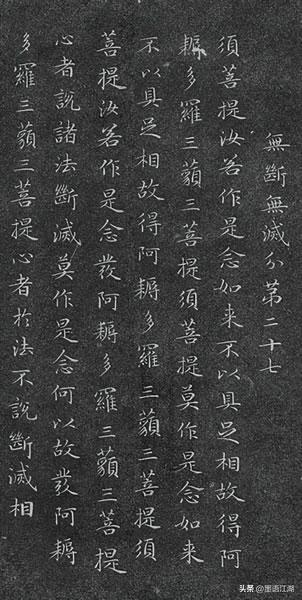 無斷無滅分第二十七
須菩提汝若作是念如来不以具足相故得阿
耨多羅三藐三菩提須菩提莫作是念如来
不以具足相故得阿耨多羅三藐三菩提須
菩提汝若作是念發阿耨多羅三藐三菩提
心者說諸法斷滅莫作是念何以故發阿耨
多羅三藐三菩提心者於法不說斷滅相
头条 @墨语江湖